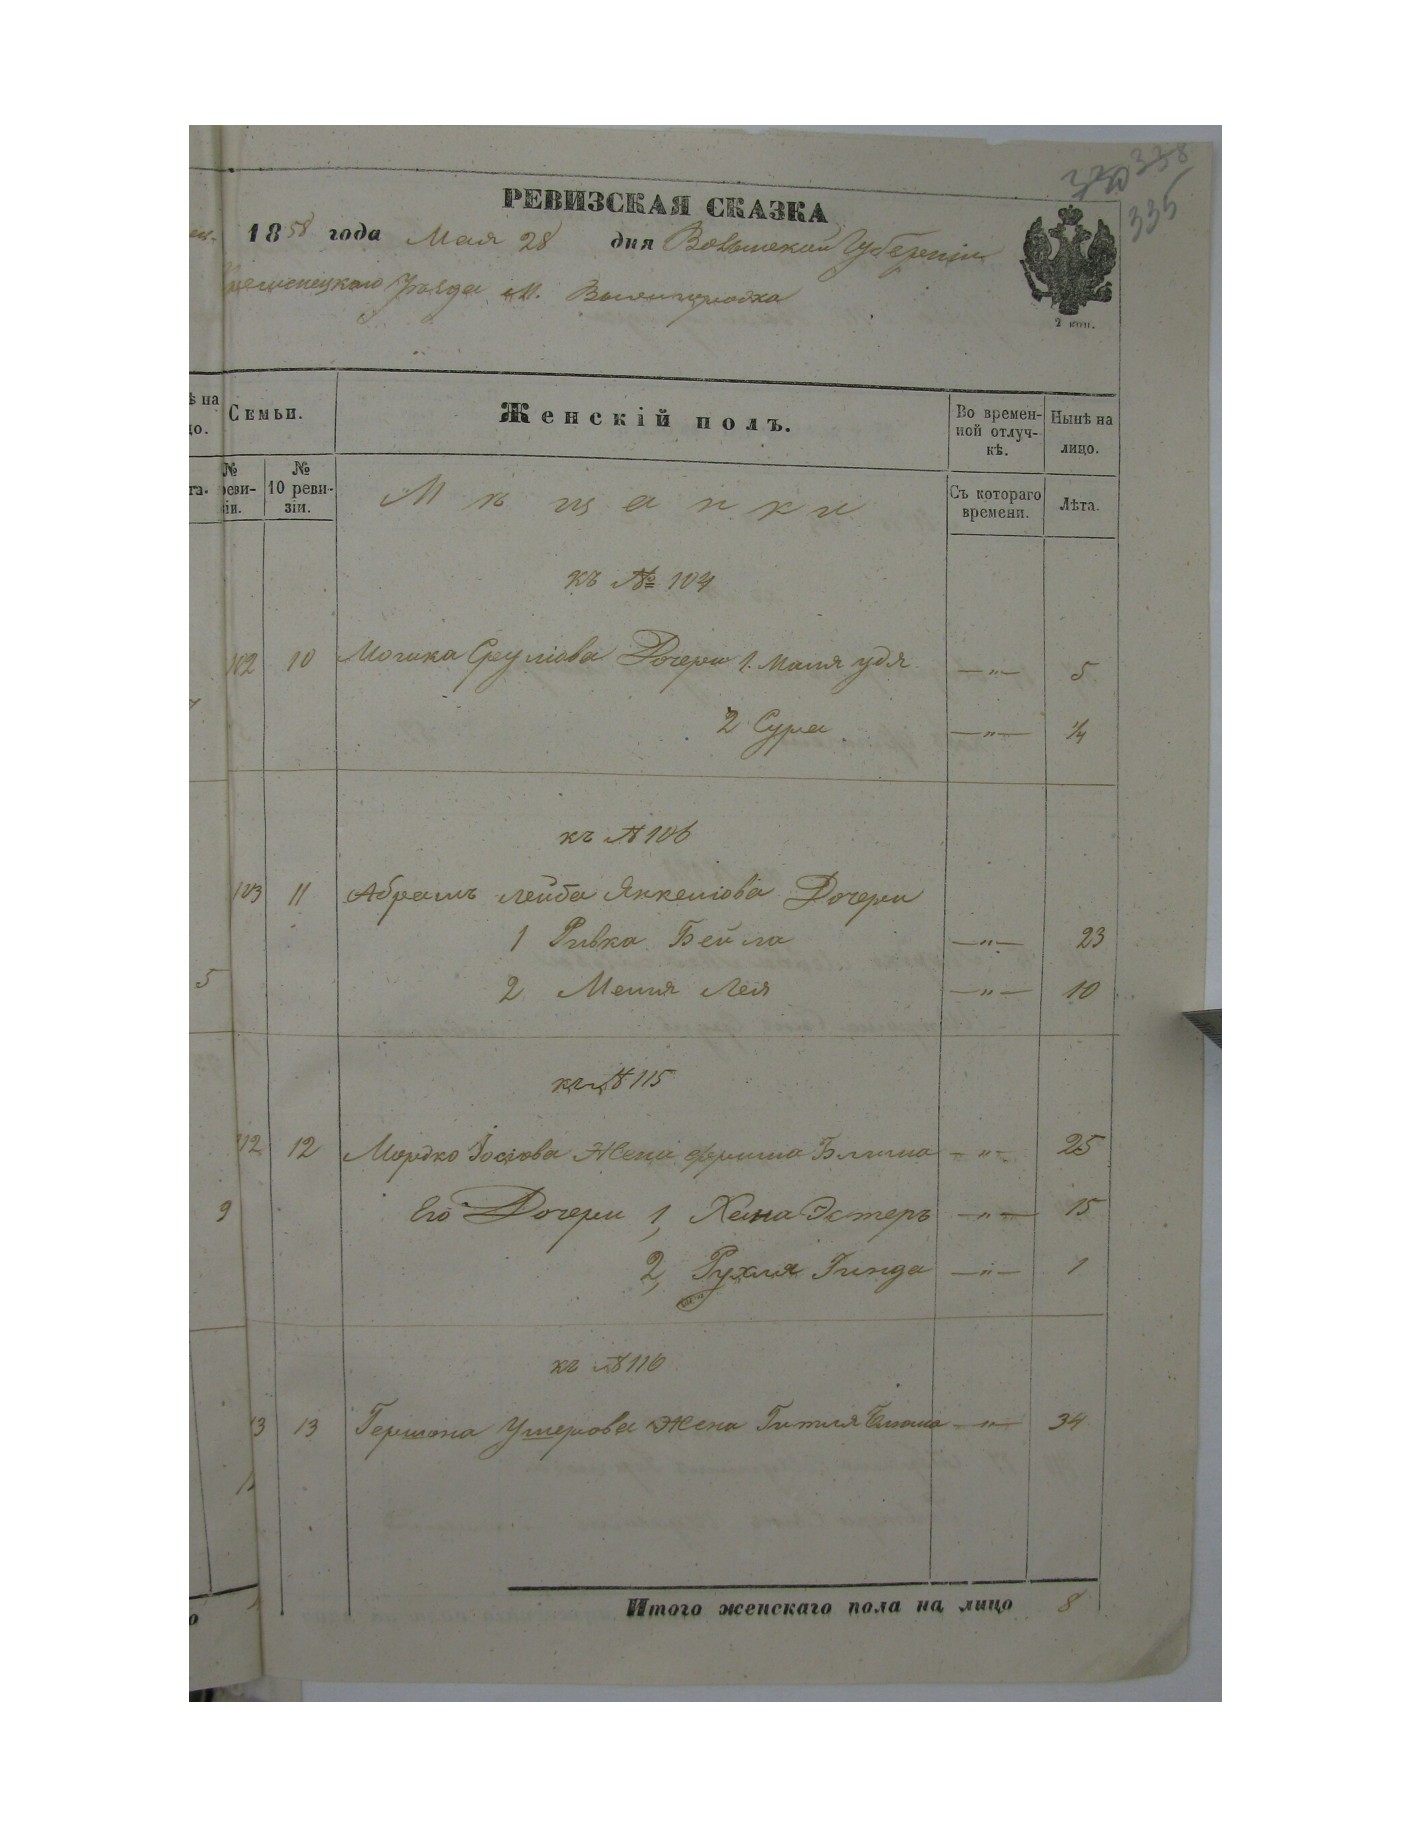 330 338
335
РЕВИЗСКАЯ СКАЗКА
1858 года Мая 28 дня Волынской Губерніи
Кременецкого Уѣзда М. Вышгородка
2 коп.
ѣ на
цо.
Семьи.
Женскій полъ.
Во времен-
ной отлуч-
кѣ.
Нынѣ на
лицо.
та.
№
реви-
зіи.
№
10 реви-
зіи.
Мѣщанки
Съ котораго
времени.
Лѣта.
къ № 104
102 10 Мошка Срулiова Дочери 1. Маля удя —"— 5
2 Сура —"— 1/4
къ № 106
103 11 Абрамъ Лейба Янкеліова Дочери
1 Ривка Бейла —"— 23
2 Меня Лея —"— 10
5
къ № 115
112 12 Мордко Іосiова Жена Фрима Блима —"— 25
9
Его Дочери 1, Хана Эстеръ —"— 15
2, Рухля Гинда —"— 1
къ № 116
13 13 Гершона Ушерова Жена Гитля —"— 34
Итого женскаго пола на лицо 8